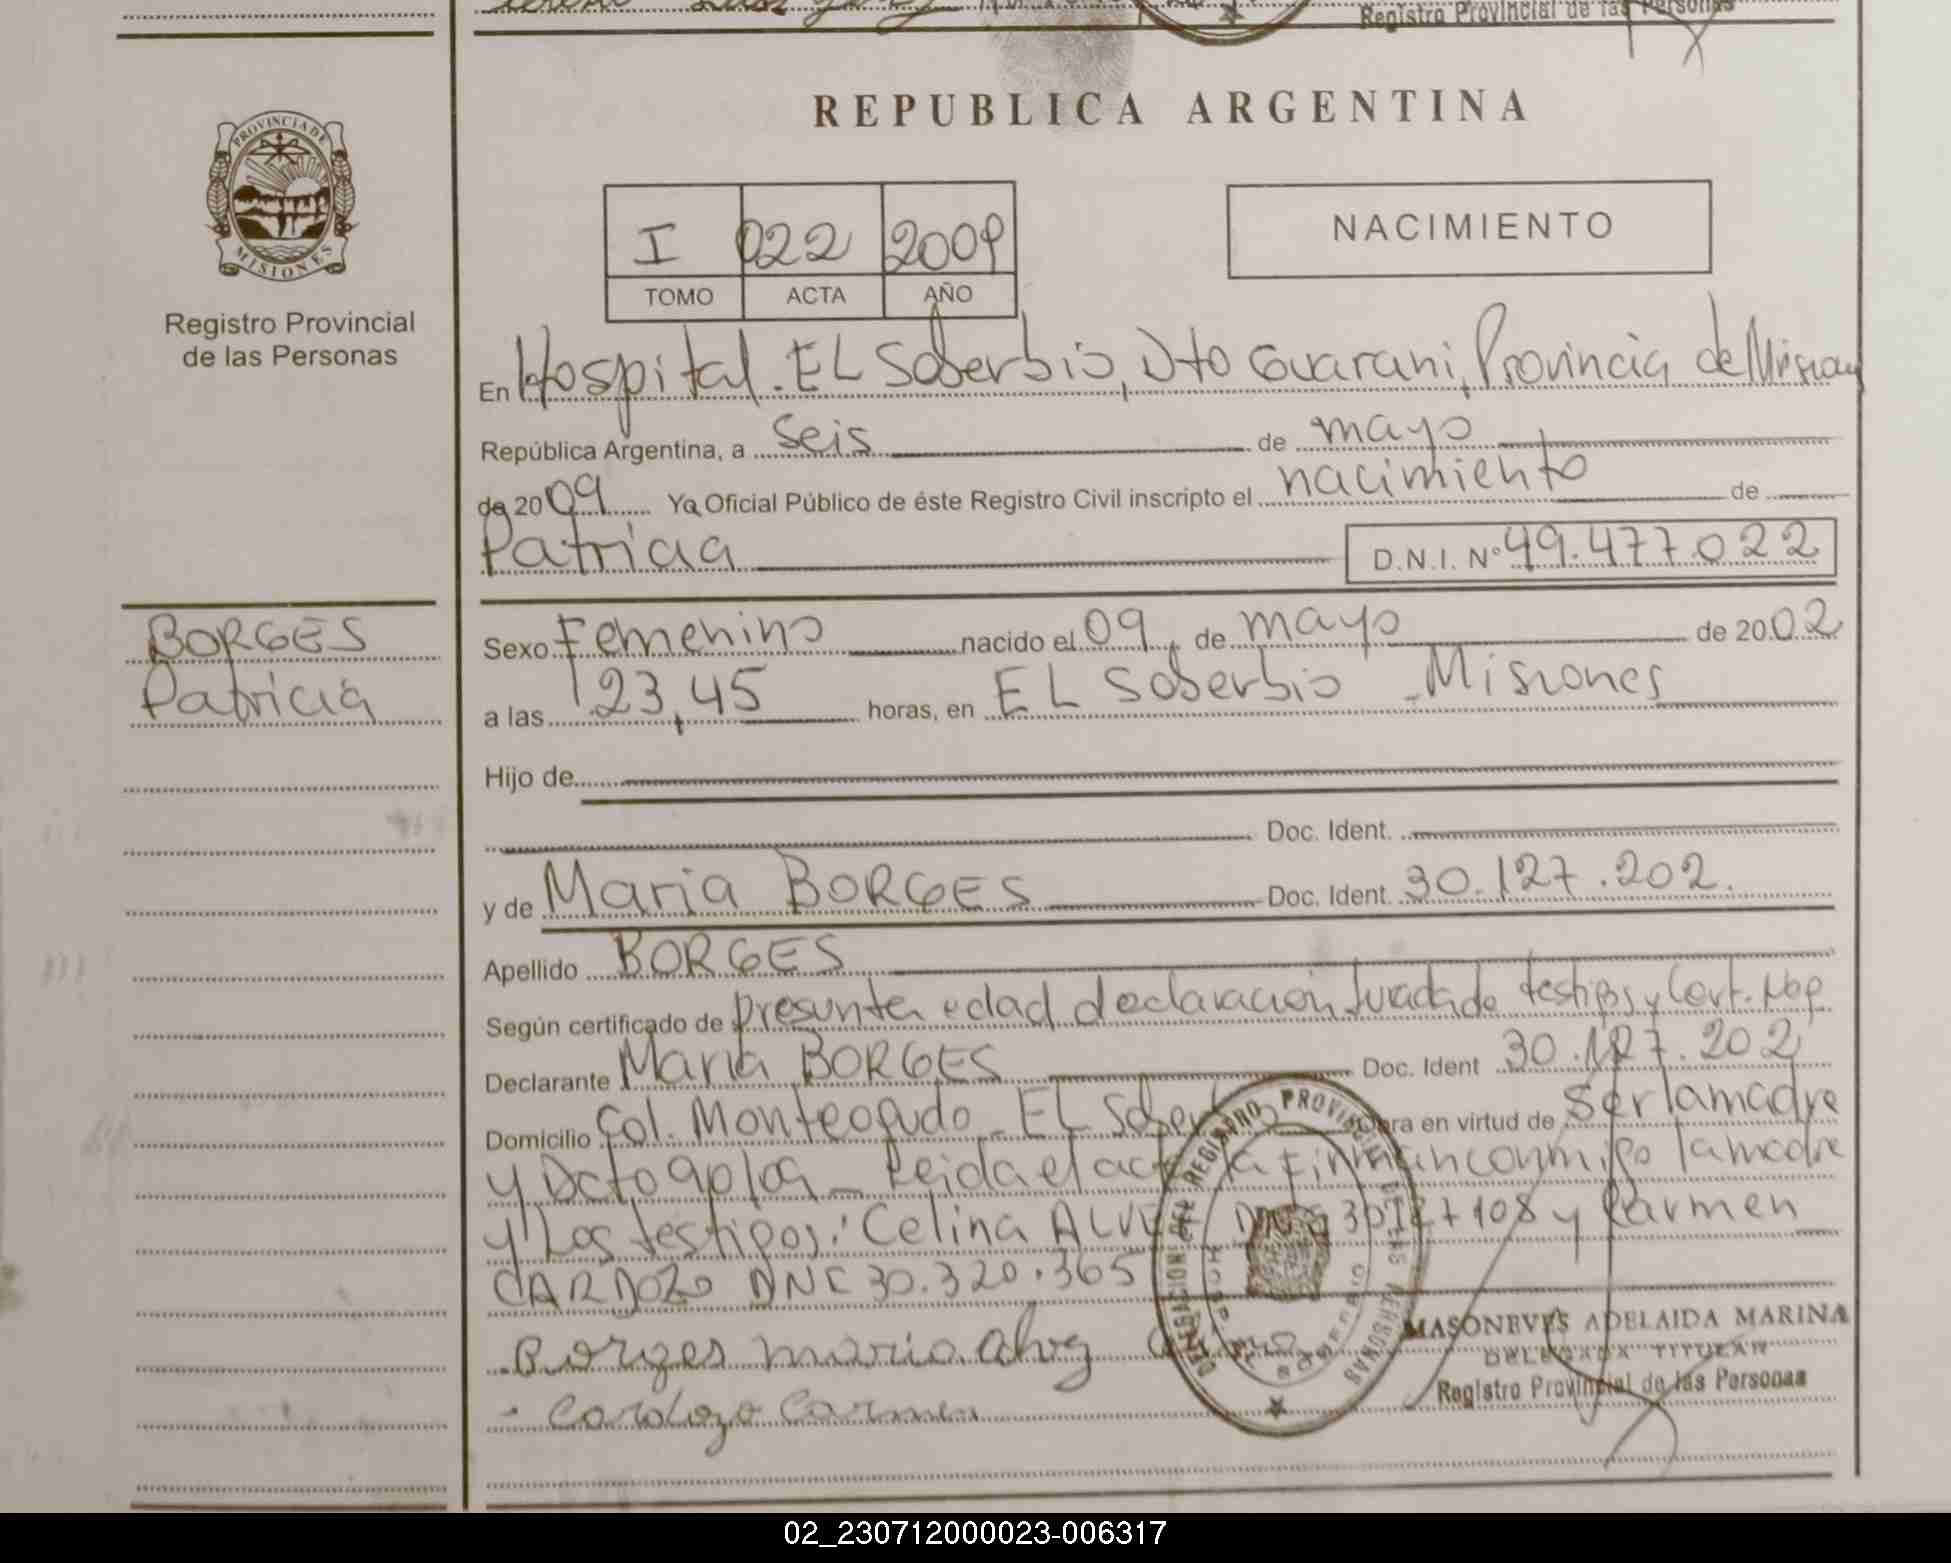 Registro Provincial de las Personas
PROVINCIA DE
MISIONES
Registro Provincial
de las Personas
REPUBLICA ARGENTINA
I 022 2009
TOMO ACTA AÑO
NACIMIENTO
En Hospital. EL Soberbio, Dto Guarani, Provincia de Misiones
República Argentina, a seis de mayo
de 2009 Yo Oficial Público de éste Registro Civil inscripto el nacimiento de
Patricia
D.N.I. Nº 49.477.022
BORGES
Patricia
Sexo Femenino nacido el 09 de mayo de 2002
a las 23,45 horas, en EL Soberbio - Misiones
Hijo de
Doc. Ident.
y de Maria BORGES Doc. Ident. 30.127.202.
Apellido BORGES
Según certificado de presunta edad declaración Jurada de testigos y Cert. Neg.
Declarante Maria BORGES Doc. Ident 30.127.202
Domicilio Col. Monteagudo - EL Soberbio Obra en virtud de ser la madre
y Dcto Leida el acta la firman conmigo la madre
y Los testigos: Celina ALVEZ y Carmen
CARDOZO DNI 30.320.365
DELEGACION DEL REGISTRO PROVINCIAL DE LAS PERSONAS
EL SOBERBIO
MASONEVES ADELAIDA MARINA
DELEGADA TITULAR
Registro Provincial de las Personas
Borges maria alvez
- Cardozo Carmen
02_230712000023-006317